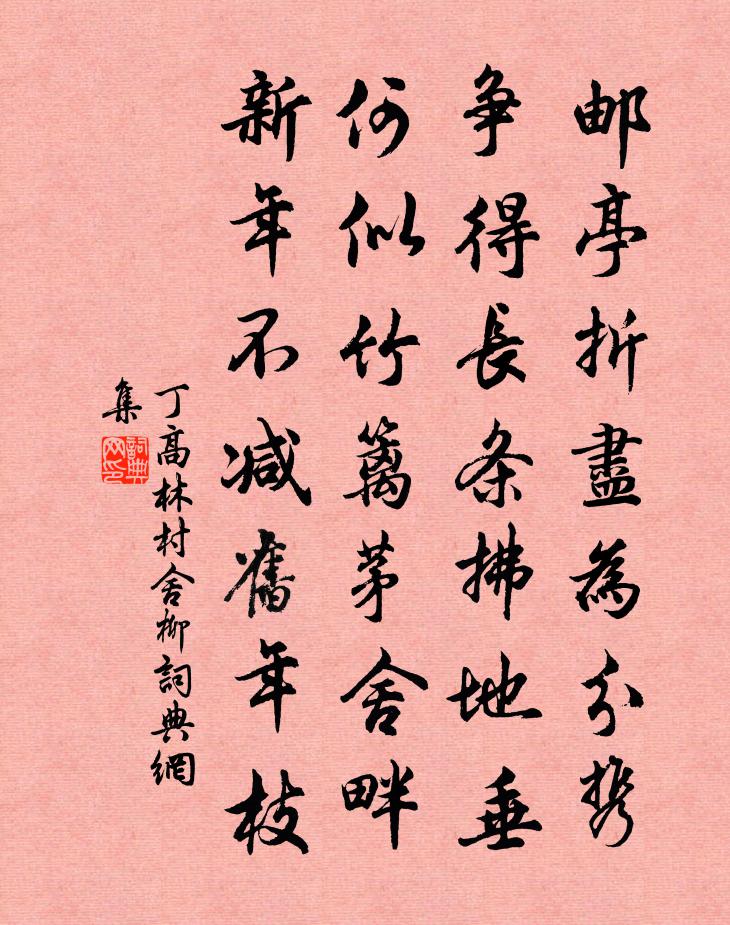 邮亭折盡為分携
争得長条拂地垂
何似竹篱茅舍畔
新年不减舊年枝
丁高林村舍柳詞典網
集
詞典網印